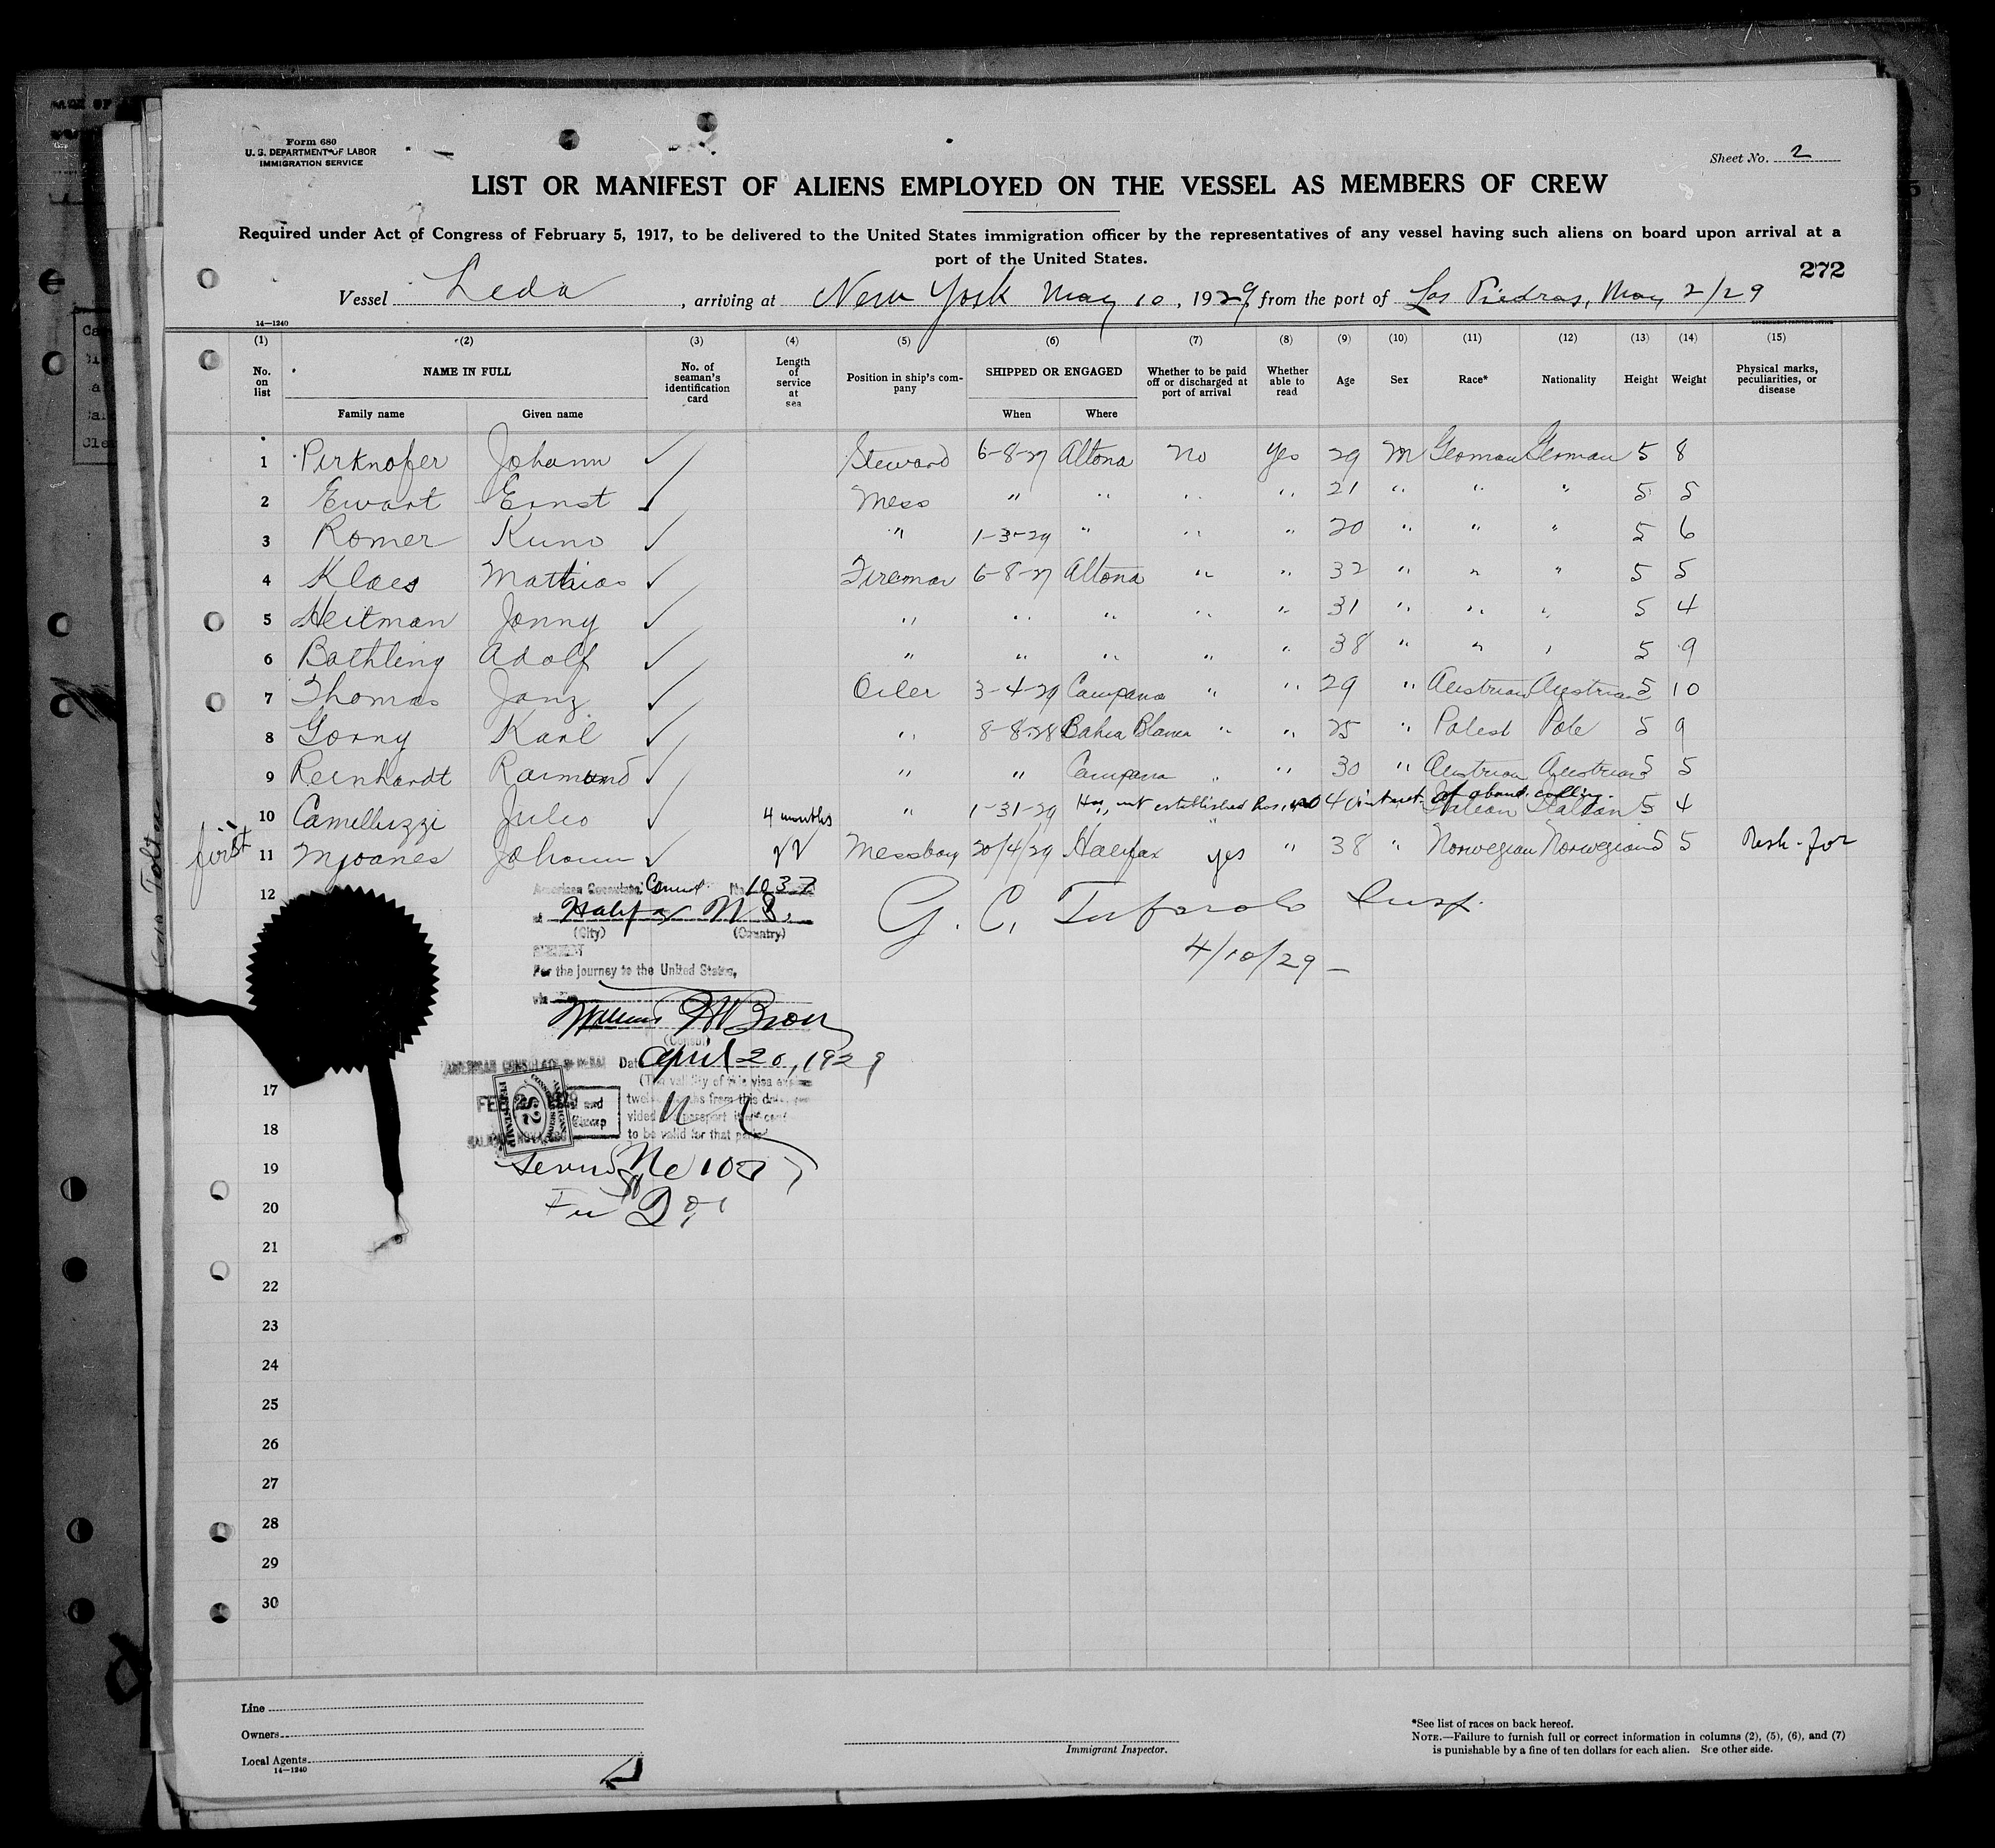 Form 680
U. S. DEPARTMENT OF LABOR
IMMIGRATION SERVICE
Sheet No. 2
LIST OR MANIFEST OF ALIENS EMPLOYED ON THE VESSEL AS MEMBERS OF CREW
Required under Act of Congress of February 5, 1917, to be delivered to the United States immigration officer by the representatives of any vessel having such aliens on board upon arrival at a
port of the United States.
272
Vessel Leda, arriving at New York May 10, 1929, from the port of Las Piedras, May 2/29
14—1240
(1) (2) (3) (4) (5) (6) (7) (8) (9) (10) (11) (12) (13) (14) (15)
No. on list NAME IN FULL Family name Given name No. of seaman's identification card Length of service at sea Position in ship's company SHIPPED OR ENGAGED When Where Whether to be paid off or discharged at port of arrival Whether able to read Age Sex Race* Nationality Height Weight Physical marks, peculiarities, or disease
1 Pirknofer Johann ✓ Steward 6-8-27 Altona No Yes 29 M German German 5 8
2 Ewart Ernst ✓ Mess " " " " 21 " " " 5 5
3 Romer Kuno ✓ " 1-3-29 " " " 20 " " " 5 6
4 Klaes Mathias ✓ Fireman 6-8-27 Altona " " 32 " " " 5 5
5 Heitman Jonny ✓ " " " " " 31 " " " 5 4
6 Bathling Adolf ✓ " " " " " 38 " " " 5 9
7 Thomas Janz ✓ Oiler 3-4-29 Campana " " 29 " Austrian Austrian 5 10
8 Gorny Karl ✓ " 8-8-28 Bahia Blanca " " 25 " Polest Pole 5 9
9 Reinhardt Raimund ✓ " " Campana " " 30 " Austrian Austrian 5 5
10 Camelluzzi Julio ✓ 4 months " 1-31-29 not established Italian Italian 5 4
first 11 Mjoanes Johann ✓ Messboy 20/4/29 Halifax yes " 38 " Norwegian Norwegian 5 5
12
American Consulate No. 1037
at Halifax N S.
(City) (Country)
G. C. Insp.
4/10/29
For the journey to the United States,
(Consul)
AMERICAN CONSULATE Date April 20, 1929
17
18
to be valid for that
19 No
20
21
22
23
24
25
26
27
28
29
30
Line
Owners
Local Agents
14—1240
Immigrant Inspector.
*See list of races on back hereof.
NOTE.—Failure to furnish full or correct information in columns (2), (5), (6), and (7)
is punishable by a fine of ten dollars for each alien. See other side.